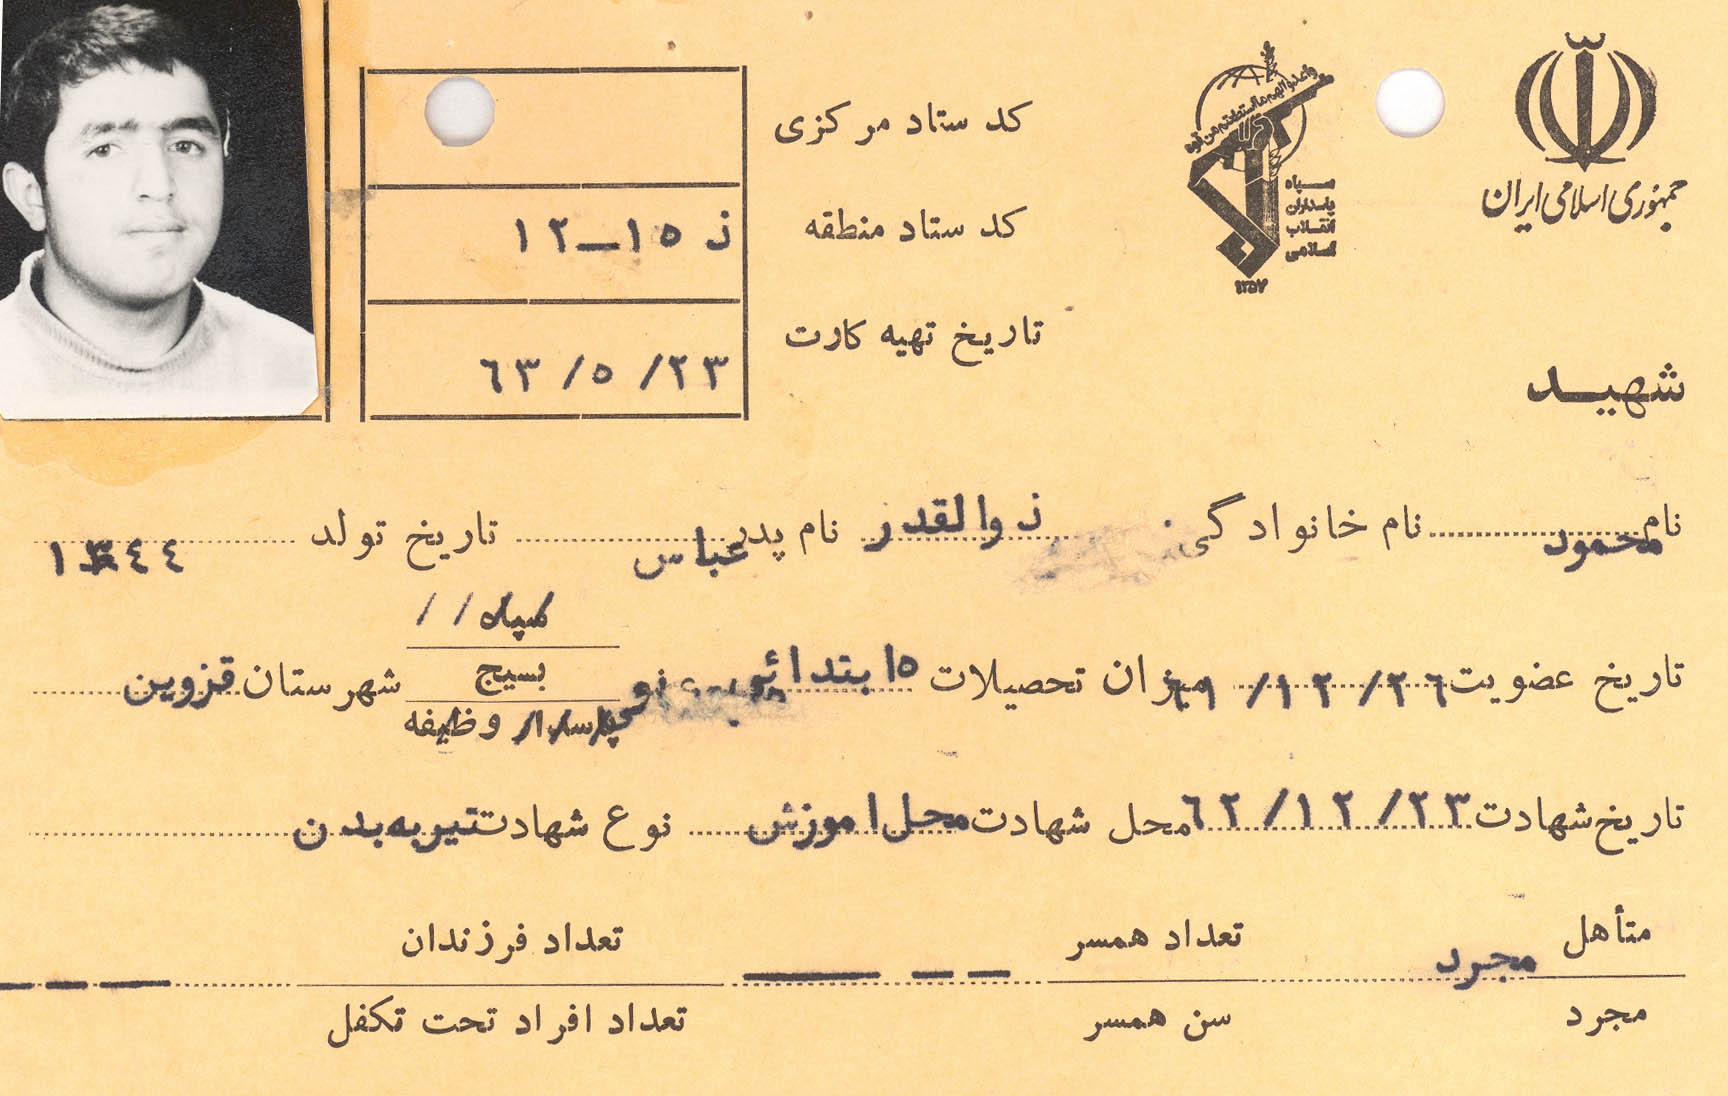 جمهوری اسلامی ایران
واعدوا لهم ما استطعتم من قوة
سپاه
پاسداران
انقلاب
اسلامی
۱۳۵۷
کد ستاد مرکزی
کد ستاد منطقه ذ ۱۵–۱۲
تاریخ تهیه کارت ۲۳/ ۵/ ۶۳
شهیـد
نام محمود نام خانوادگی ذوالقدر نام پدر عباس تاریخ تولد ۱۳۴۴
سپاه / /
تاریخ عضویت ۲۶/ ۱۲/ ۶۱ میزان تحصیلات ۵ ابتدائی بسیج شهرستان قزوین
پاسدار وظیفه
تاریخ شهادت ۲۳/ ۱۲/ ۶۲ محل شهادت محل اموزش نوع شهادت تیر به بدن
متأهل مجرد تعداد همسر تعداد فرزندان
مجرد سن همسر تعداد افراد تحت تکفل